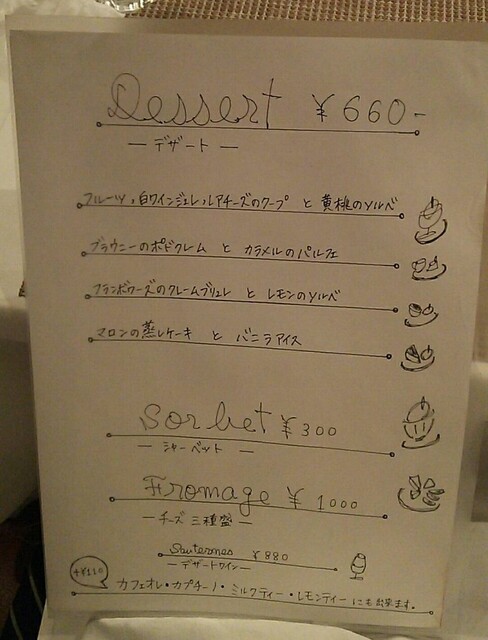 Dessert ¥660-
— デザート —
フルーツ、白ワインジュレ、レアチーズのクープ と 黄桃のソルベ
ブラウニーのポドクレム と カラメルのパルフェ
フランボワーズのクレームブリュレ と レモンのソルベ
マロンの蒸しケーキ と バニラアイス
Sorbet ¥300
— シャーベット —
Fromage ¥1000
— チーズ 三種盛 —
Sauternes ¥880
— デザートワイン —
+¥110 カフェオレ・カプチーノ・ミルクティー・レモンティーにも出来ます。